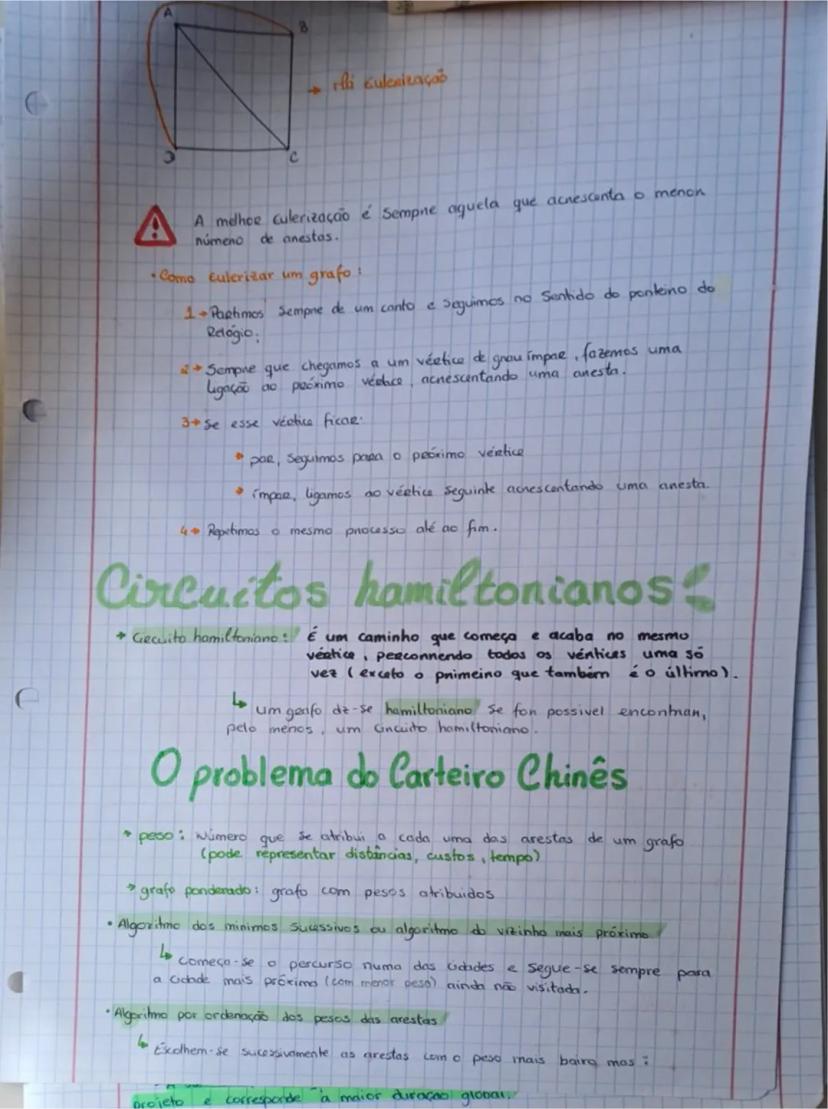 A
B
→ Há eulerização
D
C
A melhor eulerização é sempre aquela que acrescenta o menor
número de arestas.
• Como eulerizar um grafo:
1→ Partimos sempre de um canto e seguimos no sentido do ponteiro do
Relógio;
2→ Sempre que chegamos a um vértice de grau ímpar, fazemos uma
ligação ao próximo vértice, acrescentando uma aresta.
3→ Se esse vértice ficar:
• par, seguimos para o próximo vértice
• ímpar, ligamos ao vértice seguinte acrescentando uma aresta.
4→ Repetimos o mesmo processo até ao fim.
Circuitos hamiltonianos:
→ Circuito hamiltoniano: É um caminho que começa e acaba no mesmo
vértice, percorrendo todos os vértices uma só
vez (exceto o primeiro que também é o último).
↳ um grafo diz-se hamiltoniano se for possivel encontrar,
pelo menos, um circuito hamiltoniano.
O problema do Carteiro Chinês
→ peso: Número que se atribui a cada uma das arestas de um grafo
(pode representar distâncias, custos, tempo)
→ grafo ponderado: grafo com pesos atribuidos
• Algoritmo dos minimos sucessivos ou algoritmo do vizinho mais próximo
↳ começa-se o percurso numa das cidades e segue-se sempre para
a cidade mais próxima (com menor peso) ainda não visitada.
• Algoritmo por ordenação dos pesos das arestas
↳ Escolhem-se sucessivamente as arestas com o peso mais baixo mas:
projeto e corresponde à maior duração global.